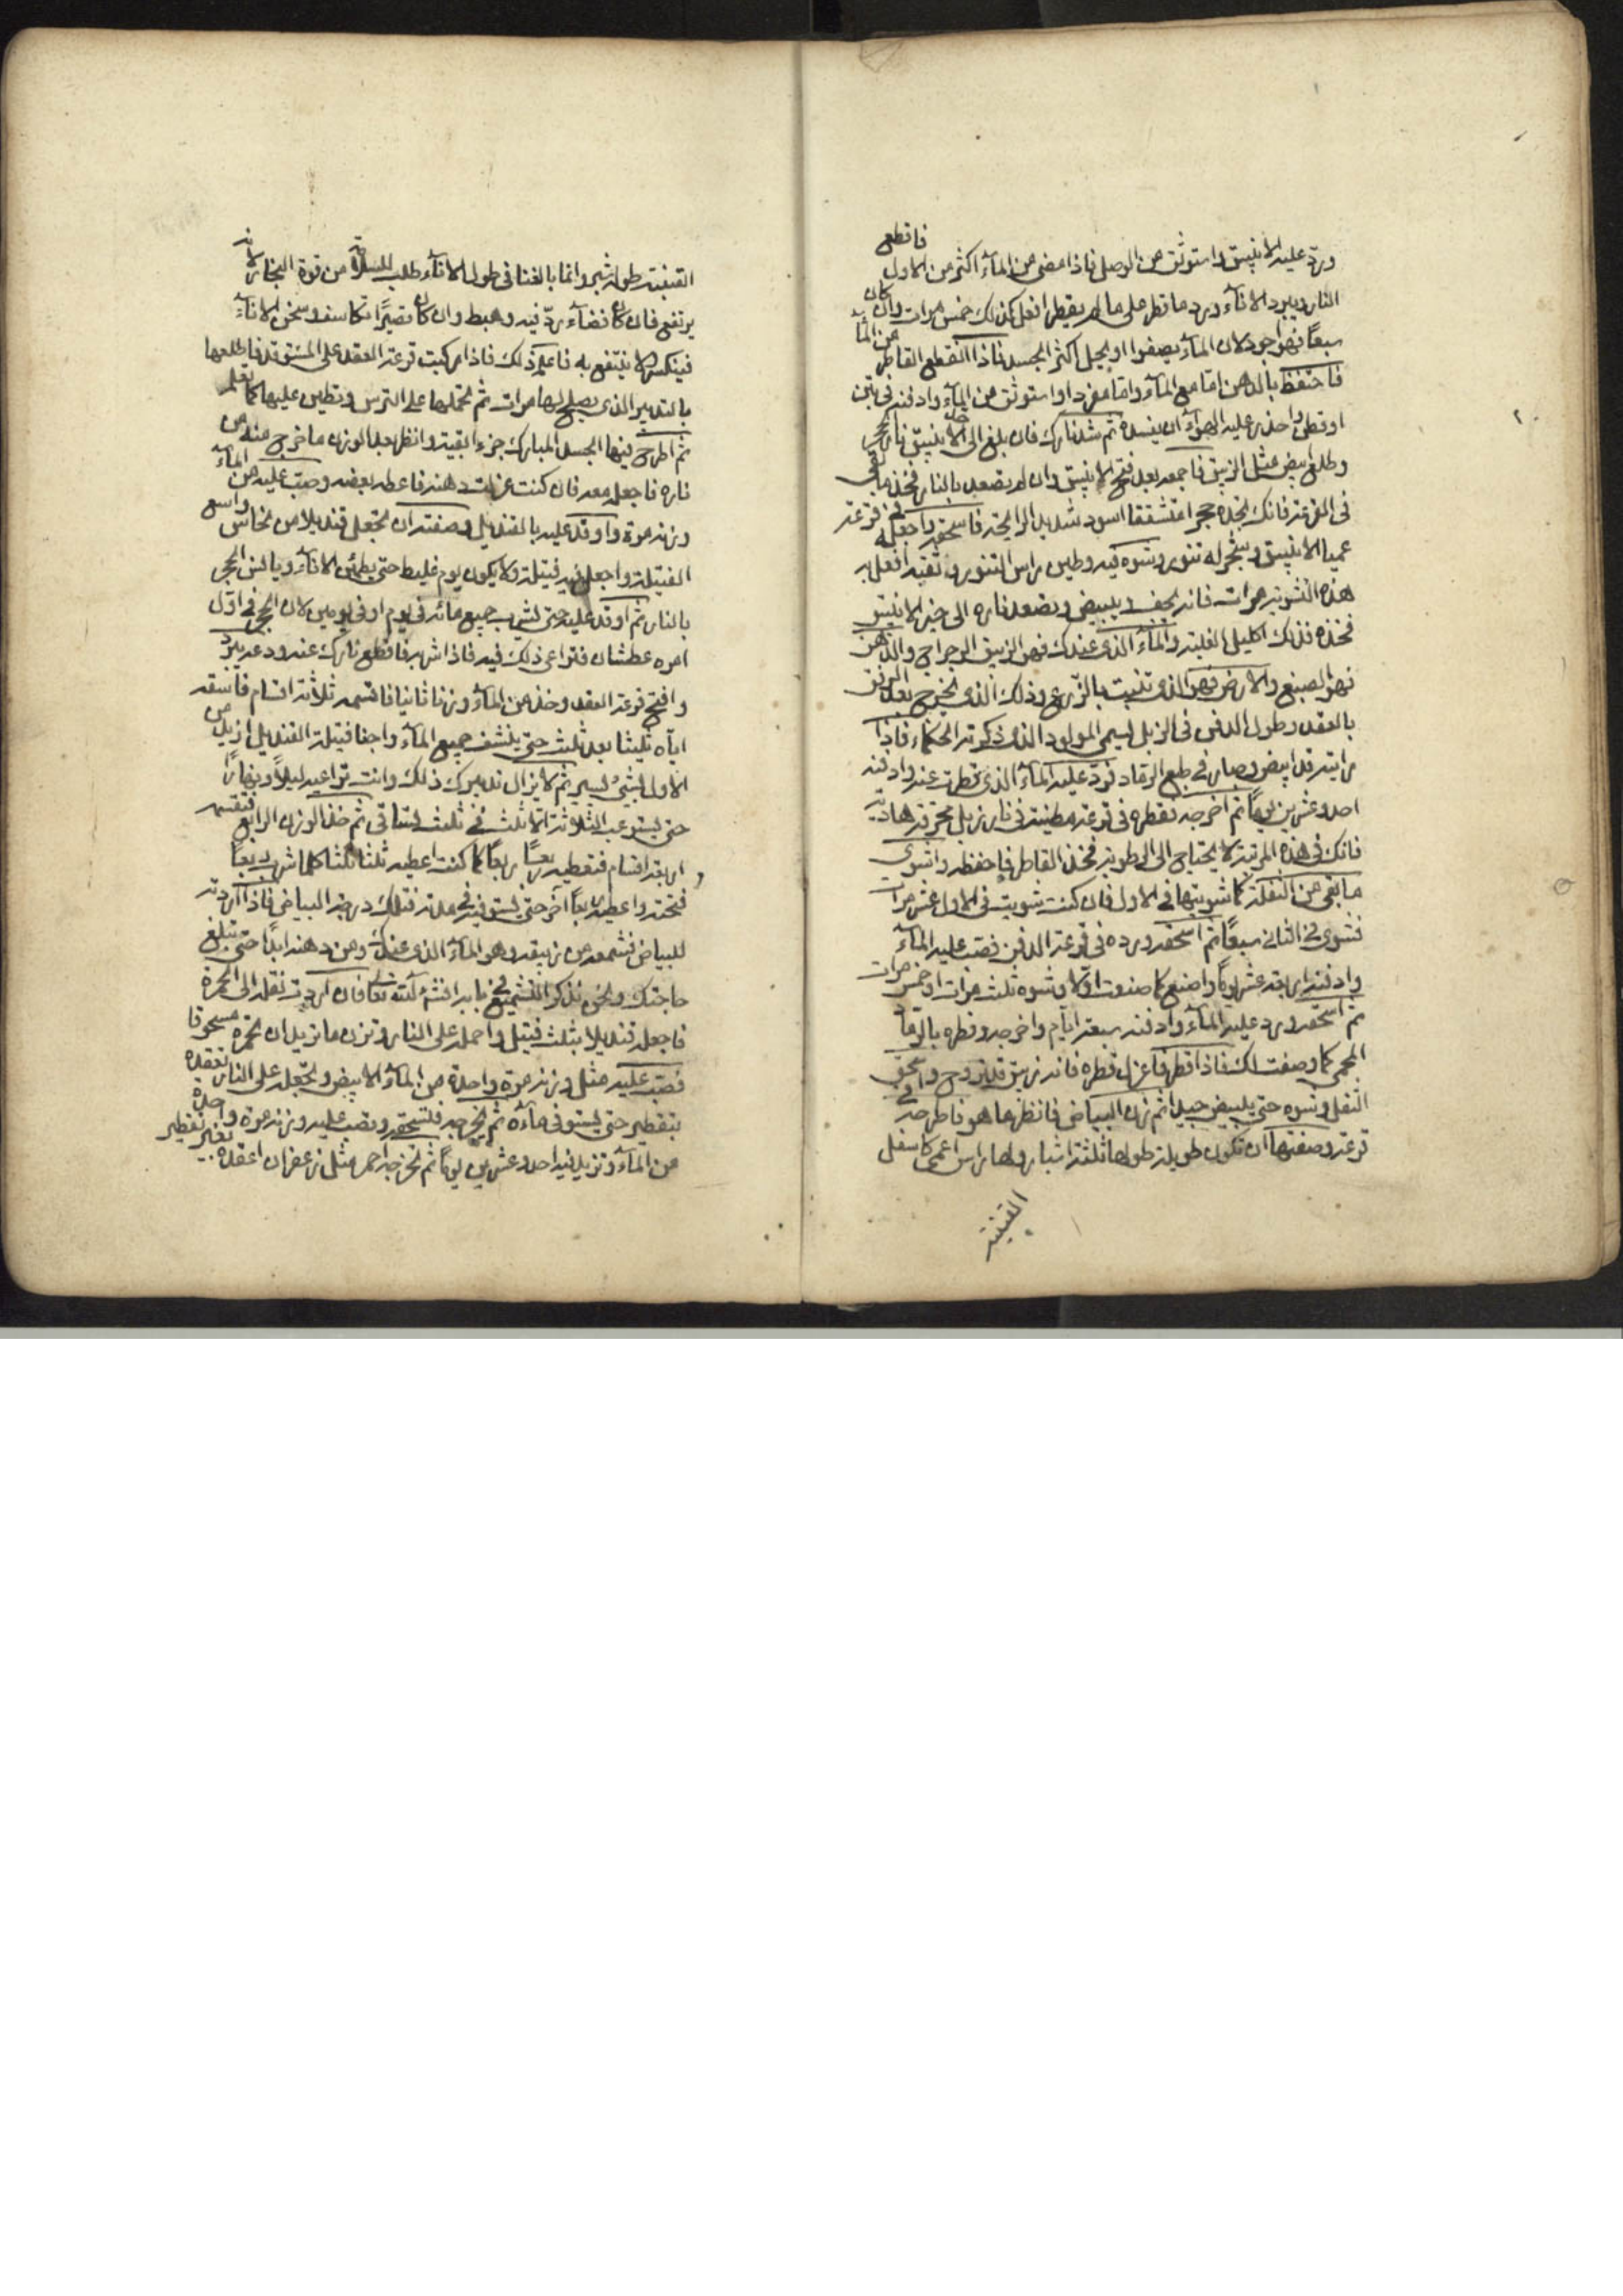 ورد عليه الانبيق واستوثق من الوصل فاذا مضى من الماء اكثر من الاول فاقطع
النار ويبرد الاناء ورد ما قطر على ما لم يقطر افعل كذلك خمس مرات وان كان
سبعاً فهو اجود لان الماء يصفوا اويحل اكثر الجسد فاذا انقطع القاطر من الماء
فاحتفظ بالدهن اما مع الماء واما مفردا واستوثق من الماء وادفنه في تبن
او قطن واحذر عليه الهواء ان يفسده ثم شد نارك فان بلغ الى الانبيق نار
وطلع ابيض مثل الزيبق فاجمعه بعد فتح الانبيق وان لم يصعد بالنار فخذ ما بقى
فى القرعة فانك تجده حجرا متشققا اسود شديد الرايحة فاسحقه واجعله في قرعة
عميا الانبيق وسجر له تنور وتشوه فيه وطين راس التنور وثقبه افعل به
هذه التشوية مرات فانه يجف ويبيض ويصعد ناره الى خير الانبيق
فخذه فذلك اكليل الغلبة والماء الذى عندك فهو الزيبق الرجراج والدهن
فهو الصبغ والارض فهو الذى تثبت بالزرع وذلك الذى يخرج بعد الرفق
بالعقد وطول الدفن فى الزبل ليسمى المولود الذى ذكرته الحكماء فاذا
رايته قد ابيض وصار في طبع الرقاد فرد عليه الماء الذى قطرت عنه وادفنه
احد وعشرين يوماً ثم اخرجه نقطره فى قرعة مطينة فى نار زبل محترقة هادية
فانك فى هذه المرتبة لا يحتاج الى الرطوبة فخذ القاطر فاحفظه واشوى
ما بقى من الثفلة كما شويتها في الاول فان كنت شويت فى الاول عشر مرات
فتشوى في الثانى سبعاً ثم اسحقه ورده فى قرعة الدفن فصب عليه الماء
وادفنه اربعة عشر يوماً واصنع كما صنعت اولا وتشوه ثلث مرات او خمس مرات
ثم اسحقه ورد عليه الماء وادفنه سبعة ايام واخرجه وقطره بالرماد
المحمى كما وصفت لك فاذا قطر فاعزل قطره فانه زيبق قد تزوج واسحق
الثفل وتشوه حتى يبيض جيدا ثم زن البياض فانظر ما هو فاطرحه في
قرعة وصفتها ان تكون طويلة طولها ثلثة اشبار ولها راس اعمى كاسفل
القنينة
القنينة طوله شبر وانما بالغنا فى طول الاناء طلب للسلامة من قوة البخار لانه
يرتفع فان كان فضاء رد فيه وهبط وان كان قصيرًا تكاسف وسخن الاناء
فينكسر ولا ينتفع به فاعلم ذلك فاذا ركبت قرعة العقد على المستوقد فاطلعها
بالتدبير الذى يصلح لها مرات ثم تحملها على الترس وتطين عليها كما تعلم
ثم اطرح فيها الجسد المبارك جزءا بقيته وانظر بعد الوزن ما خرج منه من
ناره فاجعله معه فان كنت عزلت دهنه فاعطه بعضه وصب عليه من الماء
وزنه مرة واوقد عليه بالقنديل وصفته ان تجعل قنديلا من نحاس واسع
الفتيلة واجعل فيه فتيلة ولا يكون يوم غليظ حتى يطمئن الاناء ويالف الحجر
بالنار ثم اوقد عليه حتى يشرب جميع مائه في يوم او في يومين لان الحجر في اول
امره عطشان فتراعى ذلك فيه فاذا شربه فاقطع نارك عنه ودعه يبرد
وافتح قرعة العقد وخذ من الماء وزنا ثانيا فاقسمه ثلاثة اقسام فاسقه
اياه ثلثا بعد ثلث حتى ينشف جميع الماء واجفا فتيلة القنديل ازيد من
الاول بشئ يسير ثم لا يزال تدبيرك ذلك وانت تراعيه ليلاً ونهاراً
حتى يستوعب الثلاثة اثلاث في ثلث تساقى ثم خذ الوزن الرابع فتقسمه
اربعة اقسام فتعطيه ربعاً ربعاً كما كنت اعطيه ثلثا ثلثا كلما شرب ربعاً
فتحته واعطيه ربعاً آخر حتى يستوفيه فهذه فتلك درجة البياض فاذا اردته
للبياض فشمعه من زيبقه وهو الماء الذى عندك ومن دهنه ابدًا حتى تبلغ
حاجتك ونحن نذكر التشميع في بابه انشاء الله تعالى فان اردت نقله الى الحمرة
فاجعل قنديلا بثلث فتيل واحمله على النار وتزن ما تريد ان تحمره مسحوقا
فصب عليه مثل وزنه مرة واحدة من الماء الابيض وتجعله على النار تعقده
بتقطير حتى يستوفى ماءه ثم تخرجه فلتسحقه وتصب عليه وزنه مرة واحدة
من الماء وتزيد فيه احد وعشرين يوماً ثم تخرجه احمر مثل زعفران اعقده بغير تقطير